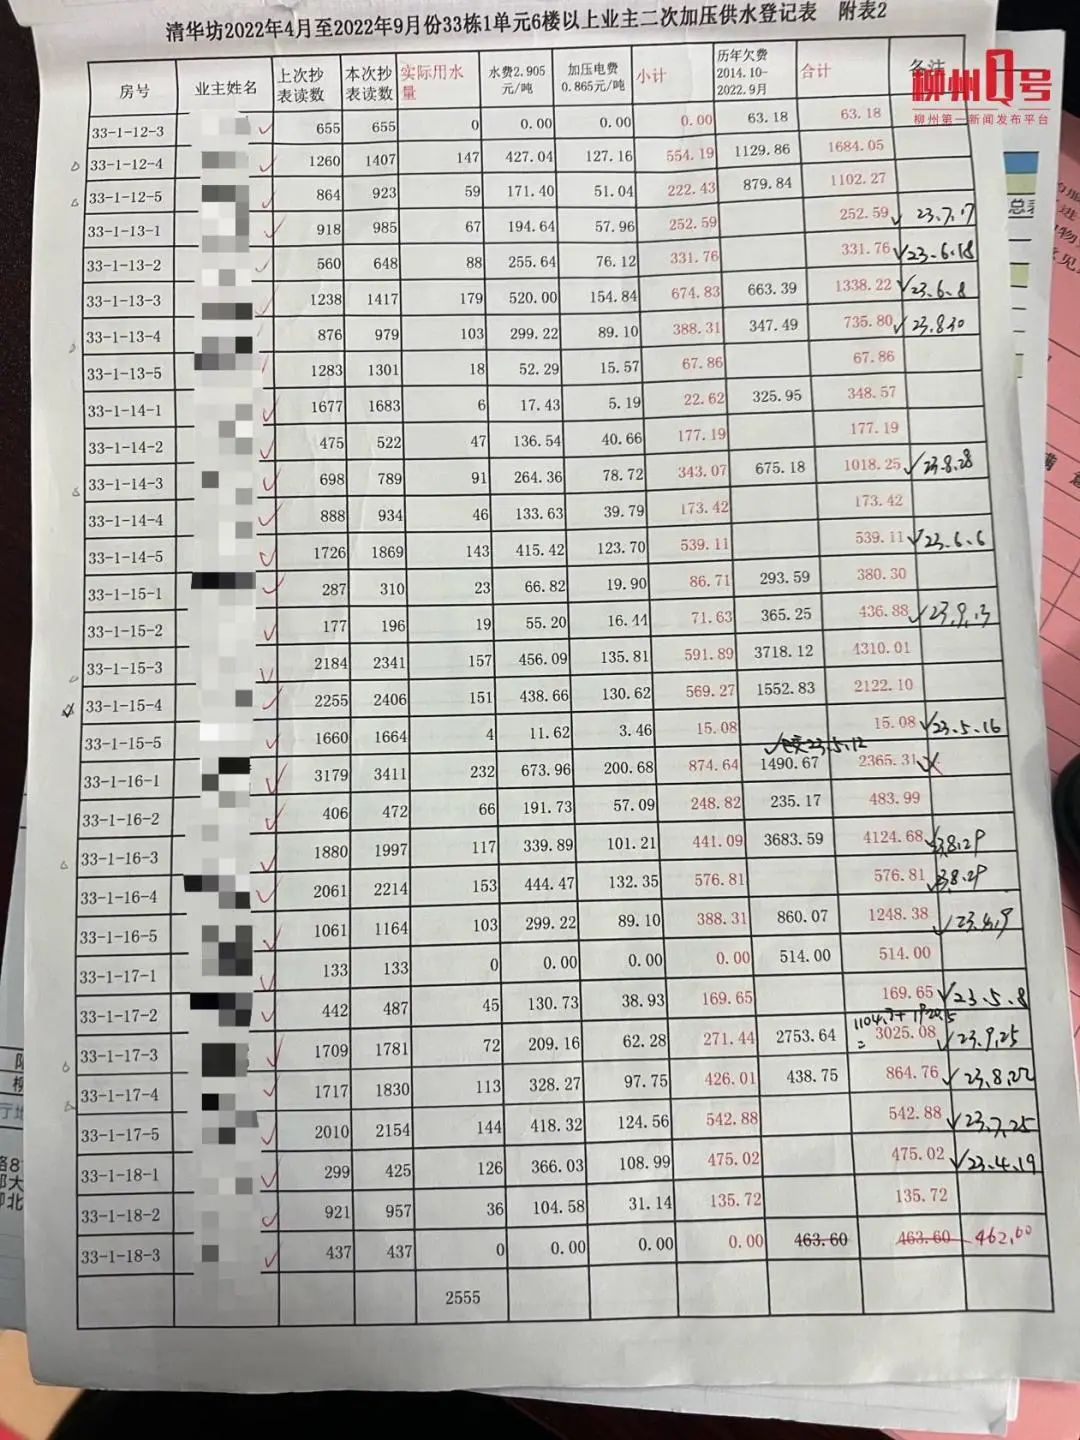 清华坊2022年4月至2022年9月份33栋1单元6楼以上业主二次加压供水登记表 附表2
房号 业主姓名 上次抄表读数 本次抄表读数 实际用水量 水费2.905元/吨 加压电费0.865元/吨 小计 历年欠费2014.10-2022.9月 合计 备注
柳州1号
柳州第一新闻发布平台
33-1-12-3 655 655 0 0.00 0.00 0.00 63.18 63.18
33-1-12-4 1260 1407 147 427.04 127.16 554.19 1129.86 1684.05
33-1-12-5 864 923 59 171.40 51.04 222.43 879.84 1102.27
33-1-13-1 918 985 67 194.64 57.96 252.59 252.59 23.7.17
33-1-13-2 560 648 88 255.64 76.12 331.76 331.76 23.6.18
33-1-13-3 1238 1417 179 520.00 154.84 674.83 663.39 1338.22 23.6.8
33-1-13-4 876 979 103 299.22 89.10 388.31 347.49 735.80 23.8.30
33-1-13-5 1283 1301 18 52.29 15.57 67.86 67.86
33-1-14-1 1677 1683 6 17.43 5.19 22.62 325.95 348.57
33-1-14-2 475 522 47 136.54 40.66 177.19 177.19
33-1-14-3 698 789 91 264.36 78.72 343.07 675.18 1018.25 23.8.28
33-1-14-4 888 934 46 133.63 39.79 173.42 173.42
33-1-14-5 1726 1869 143 415.42 123.70 539.11 539.11 23.6.6
33-1-15-1 287 310 23 66.82 19.90 86.71 293.59 380.30
33-1-15-2 177 196 19 55.20 16.44 71.63 365.25 436.88 23.9.13
33-1-15-3 2184 2341 157 456.09 135.81 591.89 3718.12 4310.01
33-1-15-4 2255 2406 151 438.66 130.62 569.27 1552.83 2122.10
33-1-15-5 1660 1664 4 11.62 3.46 15.08 15.08 23.5.16
23.5.12
33-1-16-1 3179 3411 232 673.96 200.68 874.64 1490.67 2365.31
33-1-16-2 406 472 66 191.73 57.09 248.82 235.17 483.99
33-1-16-3 1880 1997 117 339.89 101.21 441.09 3683.59 4124.68 3.8.29
33-1-16-4 2061 2214 153 444.47 132.35 576.81 576.81 3.8.29
33-1-16-5 1061 1164 103 299.22 89.10 388.31 860.07 1248.38
33-1-17-1 133 133 0 0.00 0.00 0.00 514.00 514.00
33-1-17-2 442 487 45 130.73 38.93 169.65 169.65 23.5.8
33-1-17-3 1709 1781 72 209.16 62.28 271.44 2753.64 3025.08 23.9.25
33-1-17-4 1717 1830 113 328.27 97.75 426.01 438.75 864.76 23.8.22
33-1-17-5 2010 2154 144 418.32 124.56 542.88 542.88 23.7.25
33-1-18-1 299 425 126 366.03 108.99 475.02 475.02 23.4.19
33-1-18-2 921 957 36 104.58 31.14 135.72 135.72
33-1-18-3 437 437 0 0.00 0.00 0.00 463.60 463.60 462.00
2555